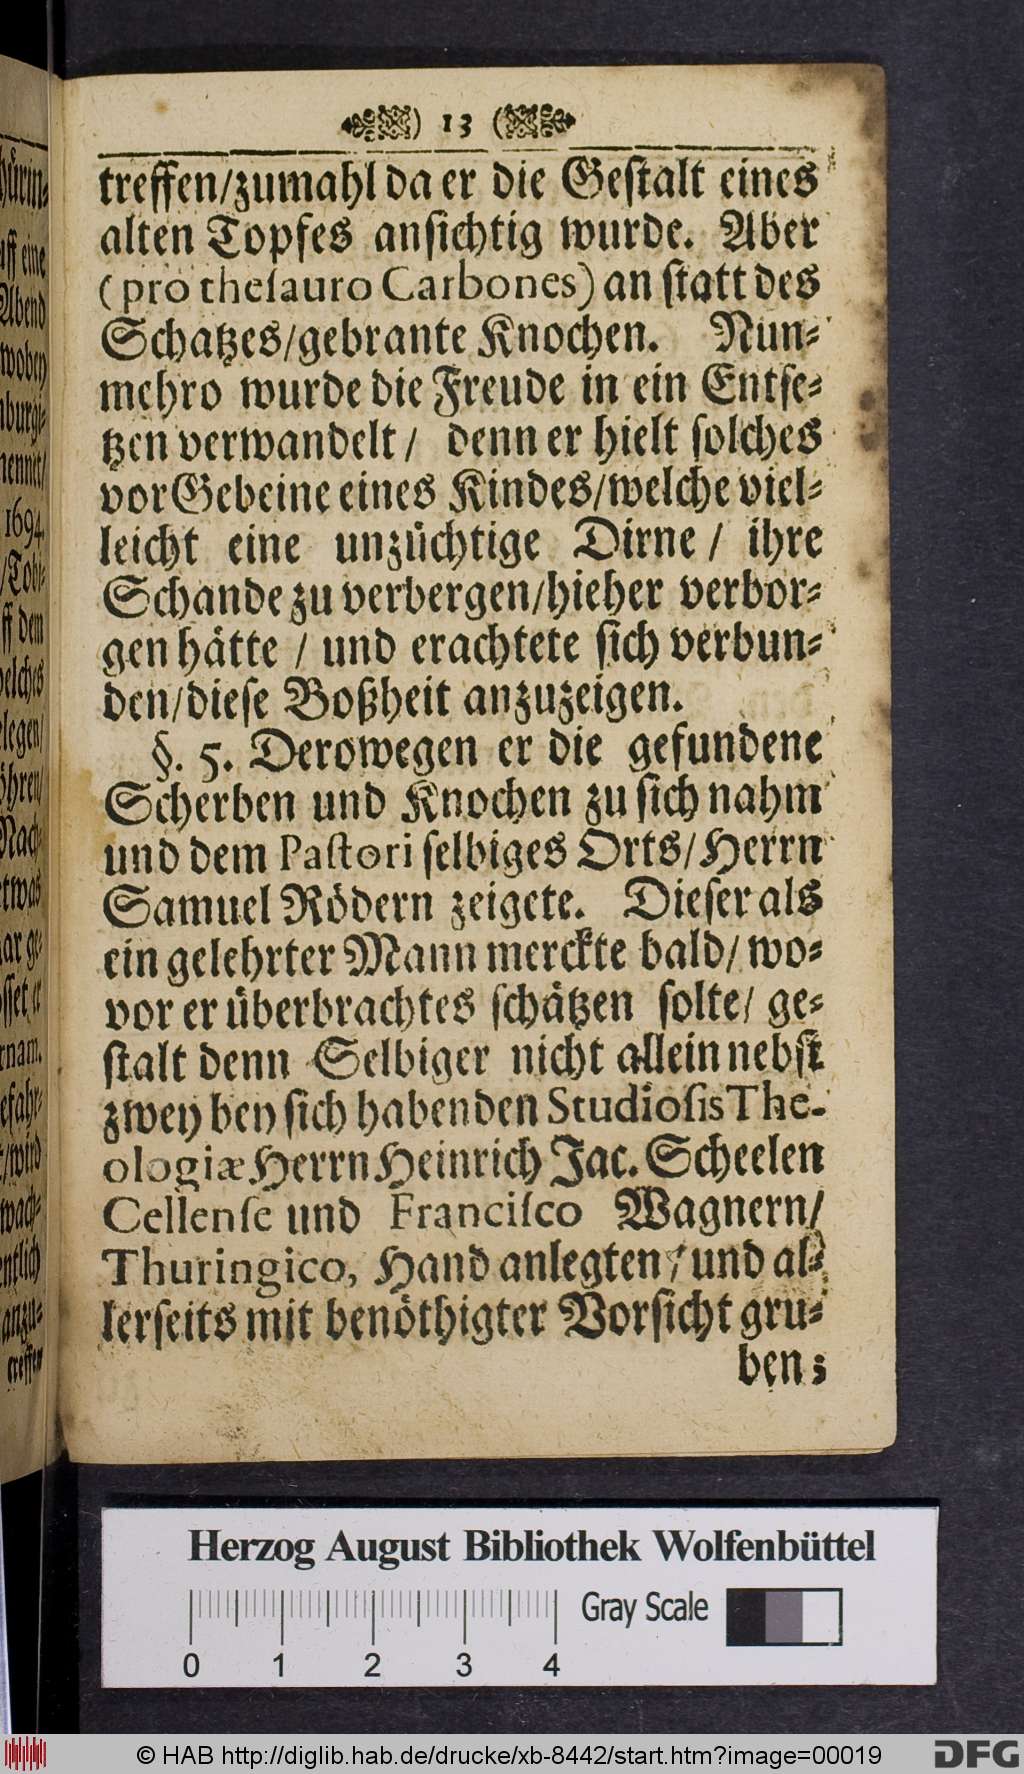 ) 13 (
treffen/zumahl da er die Geſtalt eines
alten Topfes anſichtig wurde. Aber
(pro theſauro Carbones) an ſtatt des
Schatzes/gebrante Knochen. Nun-
mehro wurde die Freude in ein Entſe-
tzen verwandelt/ denn er hielt ſolches
vor Gebeine eines Kindes/welche viel-
leicht eine unzüchtige Dirne / ihre
Schande zu verbergen/hieher verbor-
gen hätte / und erachtete ſich verbun-
den/dieſe Boßheit anzuzeigen.
§. 5. Derowegen er die gefundene
Scherben und Knochen zu ſich nahm
und dem Paſtori ſelbiges Orts/Herrn
Samuel Rödern zeigete. Dieſer als
ein gelehrter Mann merckte bald/ wo-
vor er überbrachtes ſchätzen ſolte/ ge-
ſtalt denn Selbiger nicht allein nebſt
zwey bey ſich habenden Studioſis The-
ologiæ Herrn Heinrich Jac. Scheelen
Cellenſe und Franciſco Wagnern/
Thuringico, Hand anlegten / und al-
lerſeits mit benöthigter Vorſicht gru-
ben;
hürin-
uff eine
Abend
wobey
nburgi-
nennet/
1694.
/Tobi-
ff dem
welches
elegen/
öhren/
Nach-
etwas
ar ge-
ſſet er
rnam.
efahr-
t/wird
wach-
entlich
anzu-
treffen
Herzog August Bibliothek Wolfenbüttel
Gray Scale
0 1 2 3 4
© HAB http://diglib.hab.de/drucke/xb-8442/start.htm?image=00019
DFG